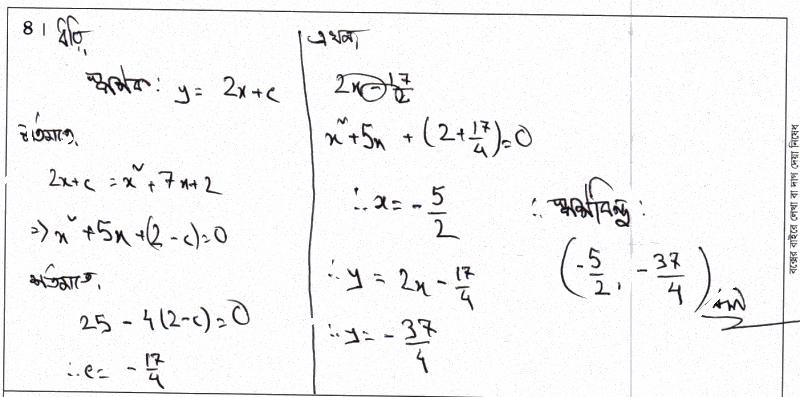 8। ধরি,
স্পর্শক: y = 2x+c
শর্তমতে,
2x+c = x² + 7x+2
⇒ x² + 5x + (2 - c) = 0
শর্তমতে,
25 - 4(2-c) = 0
∴ c = - 17/4
এখন,
2x - 17/2
x² + 5x + (2 + 17/4) = 0
∴ x = - 5/2
∴ y = 2x - 17/4
∴ y = - 37/4
∴ স্পর্শবিন্দু :
(-5/2, -37/4)
বক্সের বাইরে লেখা বা দাগ দেয়া নিষেধ